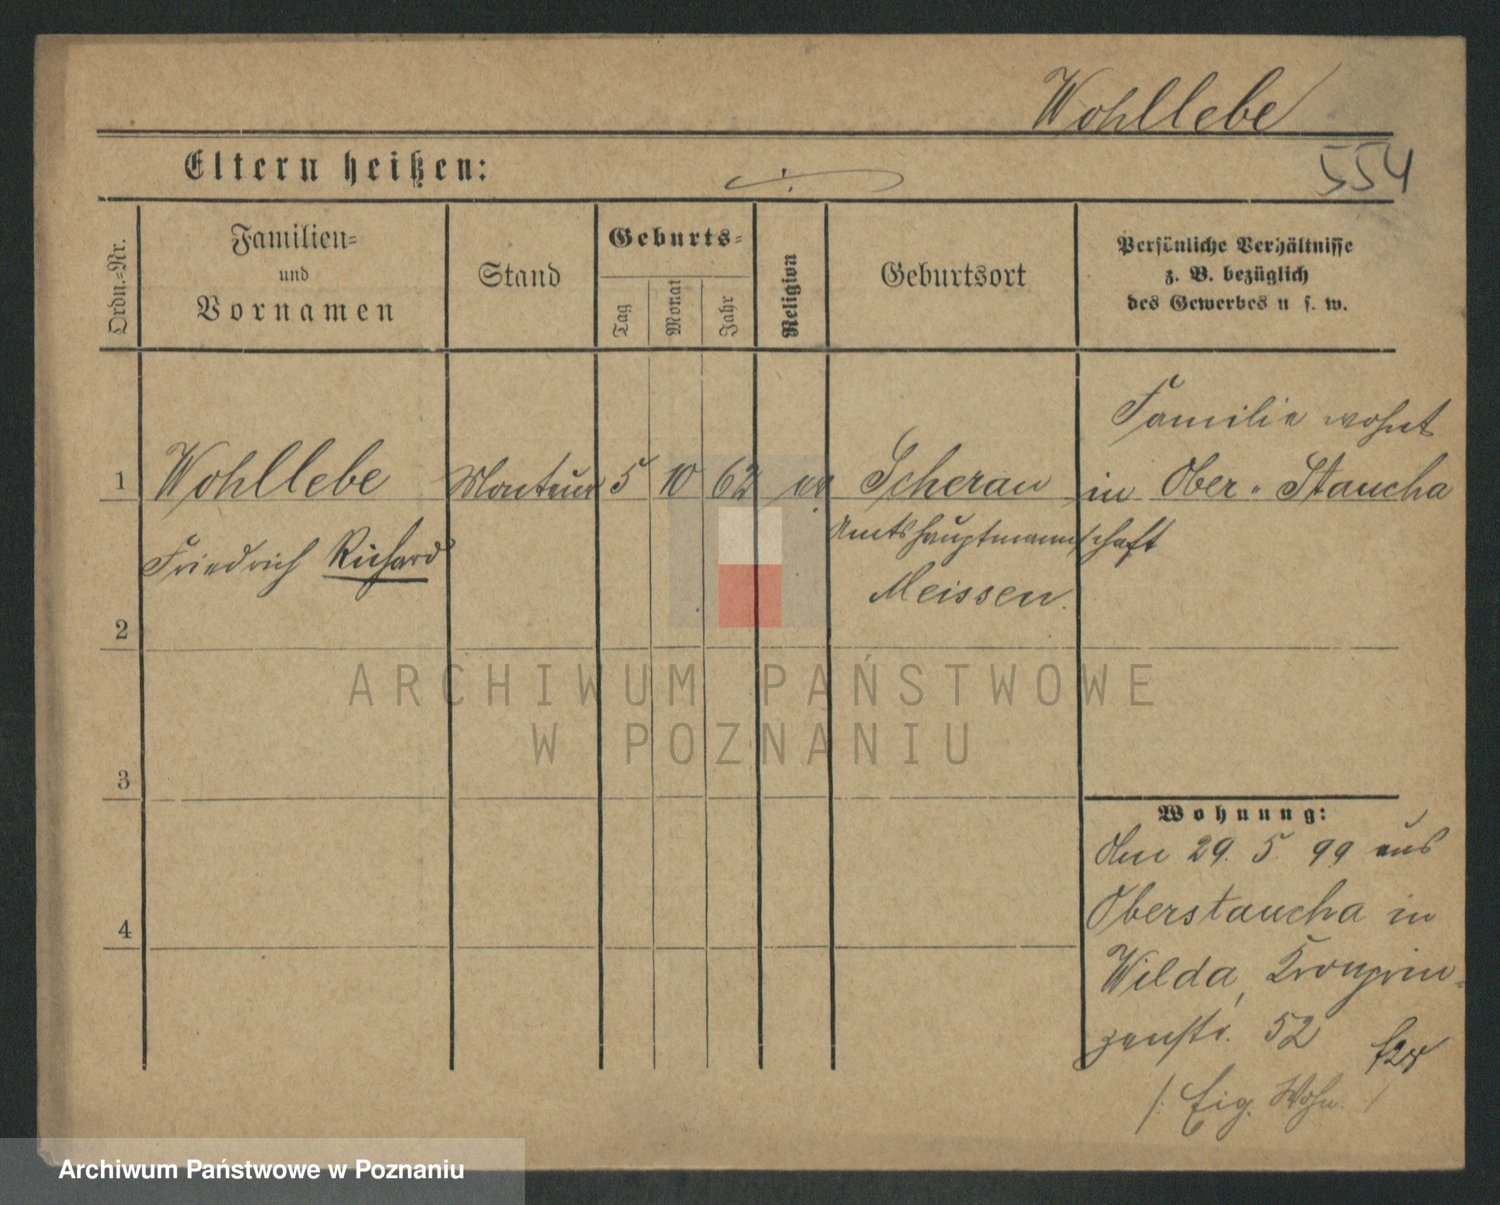 Wohllebe
554
Eltern heißen:
Ordn.-Nr.
Familien-
und
Vornamen
Stand
Geburts-
Tag
Monat
Jahr
Religion
Geburtsort
Persönliche Verhältnisse
z. B. bezüglich
des Gewerbes u s. w.
Familie wohnt
1 Wohllebe Monteur 5 10 62 ev Scherau in Ober-Staucha
Amtshauptmannschaft
Friedrich Richard
Meissen.
2
ARCHIWUM PAŃSTWOWE
W POZNANIU
3
Wohnung:
Am 29. 5. 99 aus
Oberstaucha in
4
Wilda, Kronprin-
zenstr. 52
/: Eig. Wohn. /
Archiwum Państwowe w Poznaniu